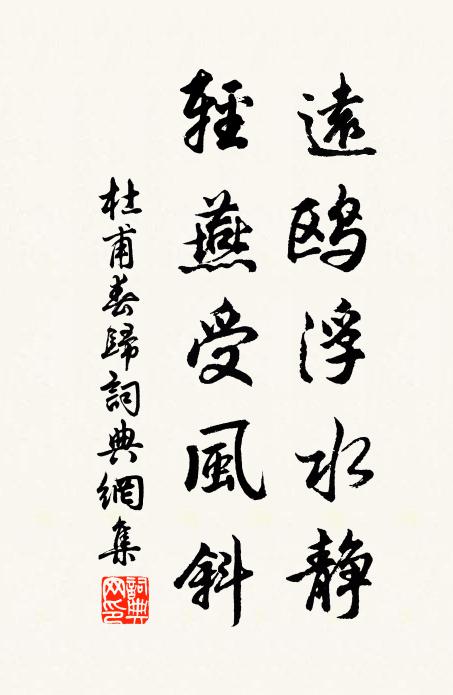 遠鷗浮水静
輕燕受風斜
杜甫春歸詞典網集
詞典網印